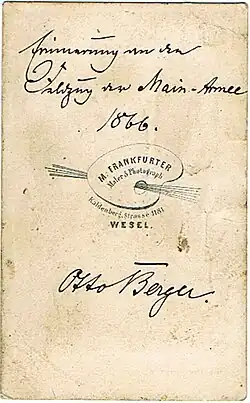 Erinnerung an den
Feldzug der Main-Armee
1866.
M. FRANKFURTER
Maler & Photograph
Kaldenberg-Strasse 1181.
WESEL.
Otto Berger.